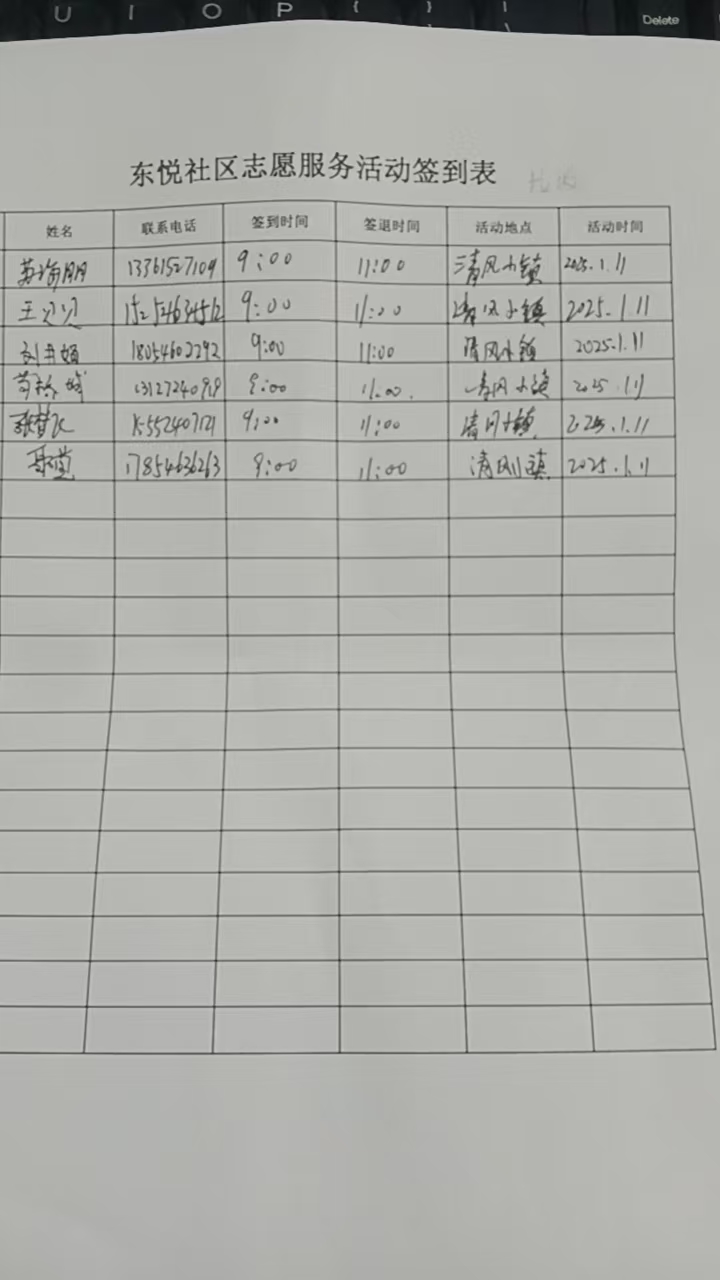 U I O P { } Delete
东悦社区志愿服务活动签到表
姓名 联系电话 签到时间 签退时间 活动地点 活动时间
13361527109 9:00 11:00 清风小镇 2025.1.11
王贝贝 152524634512 9:00 11:00 清风小镇 2025.1.11
18054602292 9:00 11:00 清风小镇 2025.1.11
13127240919 9:00 11:00. 清风小镇 2025.1.11
15552407121 9:00 11:00 清风小镇 2025.1.11
17854636263 9:00 11:00 清风小镇 2025.1.11